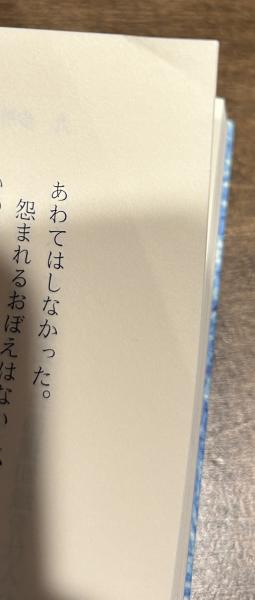 あわてはしなかった。
怨まれるおぼえはない